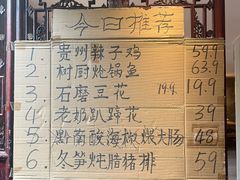 今日推荐
1. 贵州辣子鸡 59.9
2. 树厨炝锅鱼 63.9
3. 石磨豆花 19.9. 19.9
4. 老奶趴蹄花 39
5. 黔南酸海椒煨大肠 48
6. 冬笋炖腊猪排 59